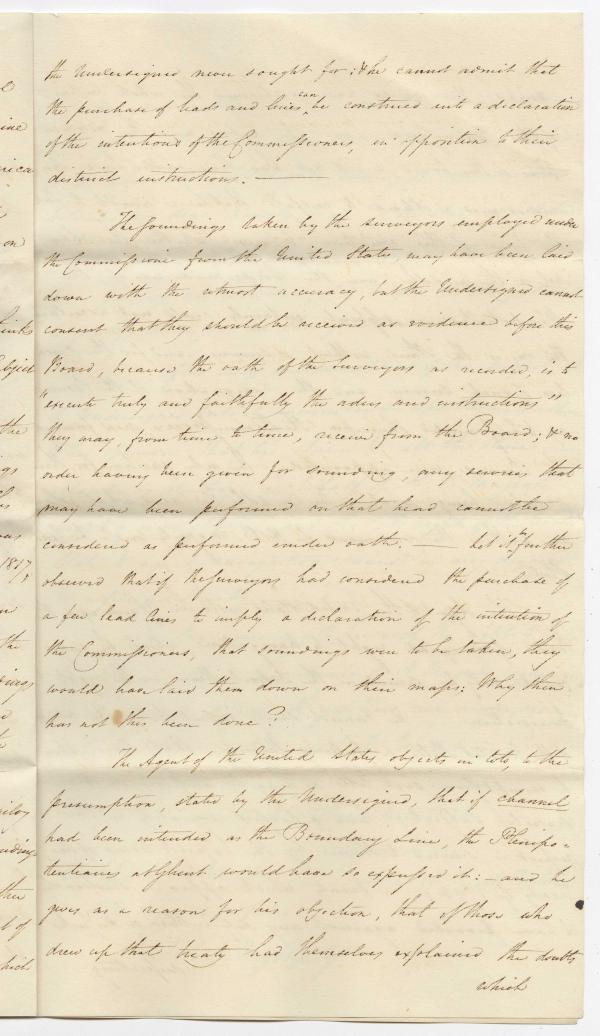 the Undersigned never sought for: & he cannot admit that
the purchase of leads and lines can be construed into a declaration
of the intentions of the Commissioners, in opposition to their
district instructions. —
The soundings taken by the surveyors employed under
the Commissioner from the United States, may have been laid
down with the utmost accuracy, but the Undersigned cannot
consent that they should be received as evidence before this
Board, because the oath of the Surveyors as recorded, is to
"execute truly and faithfully the orders and instructions"
they may, from time to time, receive from the Board; & no
order having been given for sounding, any services that
may have been performed on that head cannot be
considered as performed under oath. — Let it be further
observed that if the Surveyors had considered the purchase of
a few lead lines to imply a declaration of the intention of
the Commissioners, that soundings were to be taken, they
would have laid them down on their maps: Why then
has not this been done?
The Agent of the United States objects in toto, to the
presumption, stated by the Undersigned, that if channel
had been intended as the Boundary Line, the Plenipo-
tentiaries at Ghent would have so expressed it: — and he
gives as a reason for his objection, that of those who
drew up that treaty had themselves explained the doubts
which
ine
rica
on
links
bject
the
gs
was
1817
the
ings
ploy
ndings
then
t of
which